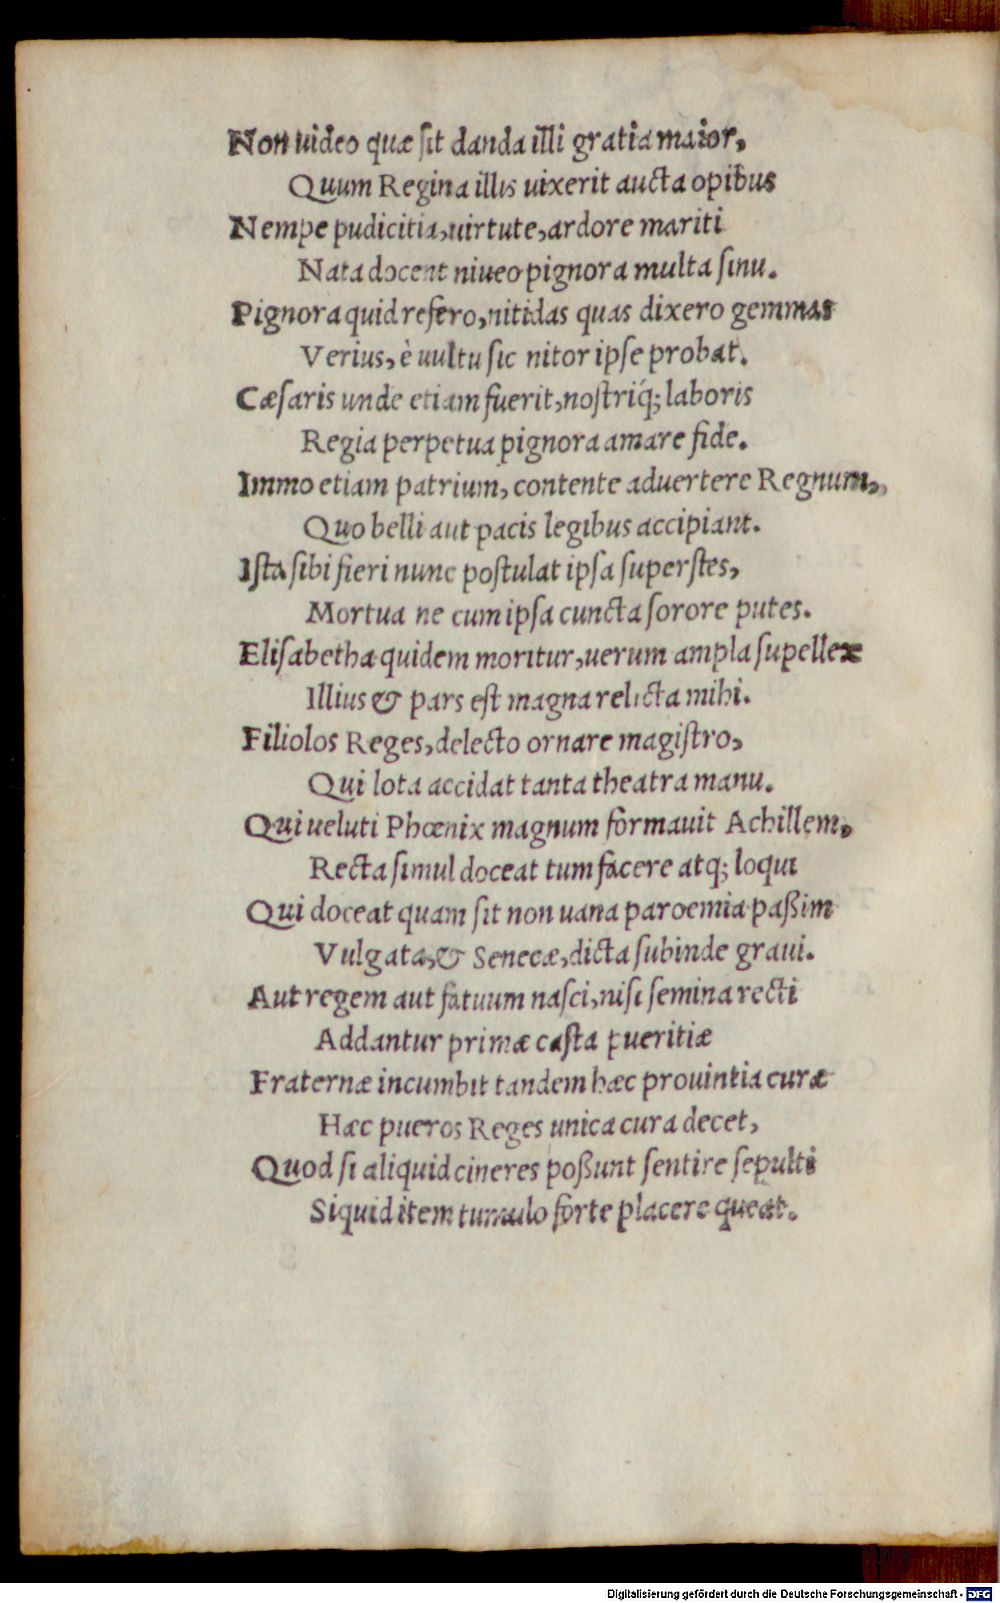 Non uideo quæ ſit danda illi gratia maior,
Quum Regina illis uixerit aucta opibus
Nempe pudicitia, uirtute, ardore mariti
Nata docent niueo pignora multa ſinu.
Pignora quid refero, nitidas quas dixero gemmas
Verius, è uultu ſic nitor ipſe probat.
Cæſaris unde etiam fuerit, noſtriq́; laboris
Regia perpetua pignora amare fide.
Immo etiam patrium, contente aduertere Regnum,
Quo belli aut pacis legibus accipiant.
Iſta ſibi fieri nunc poſtulat ipſa ſuperſtes,
Mortua ne cum ipſa cuncta ſorore putes.
Eliſabetha quidem moritur, uerum ampla ſupellex
Illius & pars eſt magna relicta mihi.
Filiolos Reges, delecto ornare magiſtro,
Qui lota accidat tanta theatra manu.
Qui ueluti Phœnix magnum formauit Achillem,
Recta ſimul doceat tum facere atq; loqui
Qui doceat quam ſit non uana paroemia paßim
Vulgata, & Senecæ, dicta ſubinde graui.
Aut regem aut fatuum naſci, niſi ſemina recti
Addantur primæ caſta pueritiæ
Fraternæ incumbit tandem hæc prouintia curæ
Hæc pueros Reges unica cura decet,
Quod ſi aliquid cineres poßunt ſentire ſepulti
Siquid item tumulo forte placere queat.
Digitalisierung gefördert durch die Deutsche Forschungsgemeinschaft - DFG